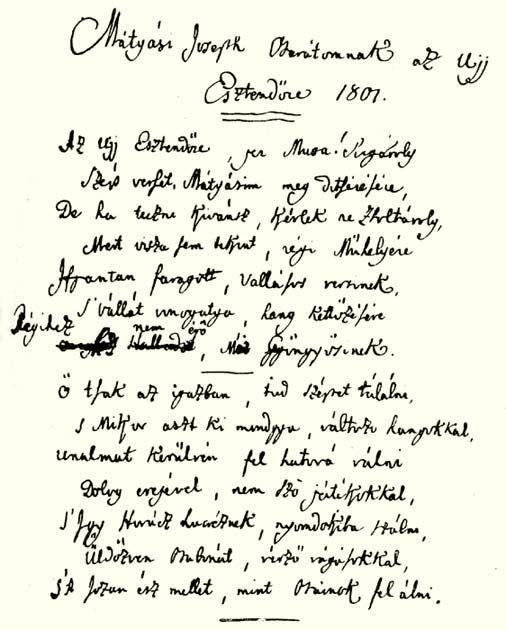 Mátyási Joseph Barátomnak az Ujj
Esztendőre 1801.
Az Ujj Esztendőre, jer Musa! Sugároly
Szép versét, Mátyásim meg ditsérésére,
De ha tetzni kivánsz, kérlek ne Zsoltároly,
Mert vissza sem tekint, régi Műhelyére
Istrantan faragott, Vallásos versinek,
S' vállát vonogatya, hang kettőzésére
Régihez nem érő, Már Gyöngyösinek.
Ő tsak az igazban, tud szépet találni,
S Mikor aszt ki mondgya, változó hangokkal,
Unalmat Kerülvén fel hatová válni
Dolog erejével, nem szó játékokkal,
S' Igy Horácz Lucáznek, nyomdokiba szálni,
Üldözven Babonát, verző vágásokkal,
S' A Jozan ész mellet, mint Bainok fel álni.